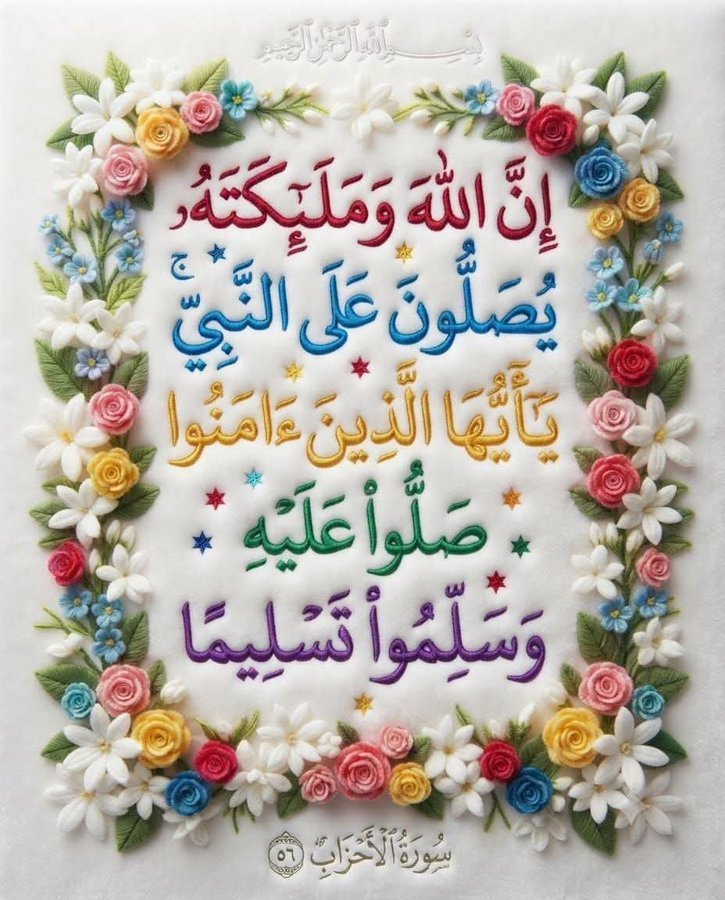 بِسْمِ ٱللَّهِ ٱلرَّحْمَٰنِ ٱلرَّحِيمِ
إِنَّ اللَّهَ وَمَلَٰٓئِكَتَهُۥ
يُصَلُّونَ عَلَى النَّبِيِّ ۚ
يَٰٓأَيُّهَا الَّذِينَ ءَامَنُوا
صَلُّوا۟ عَلَيْهِ
وَسَلِّمُوا۟ تَسْلِيمًا
سُورَةُ ٱلْأَحْزَابِ ٥٦